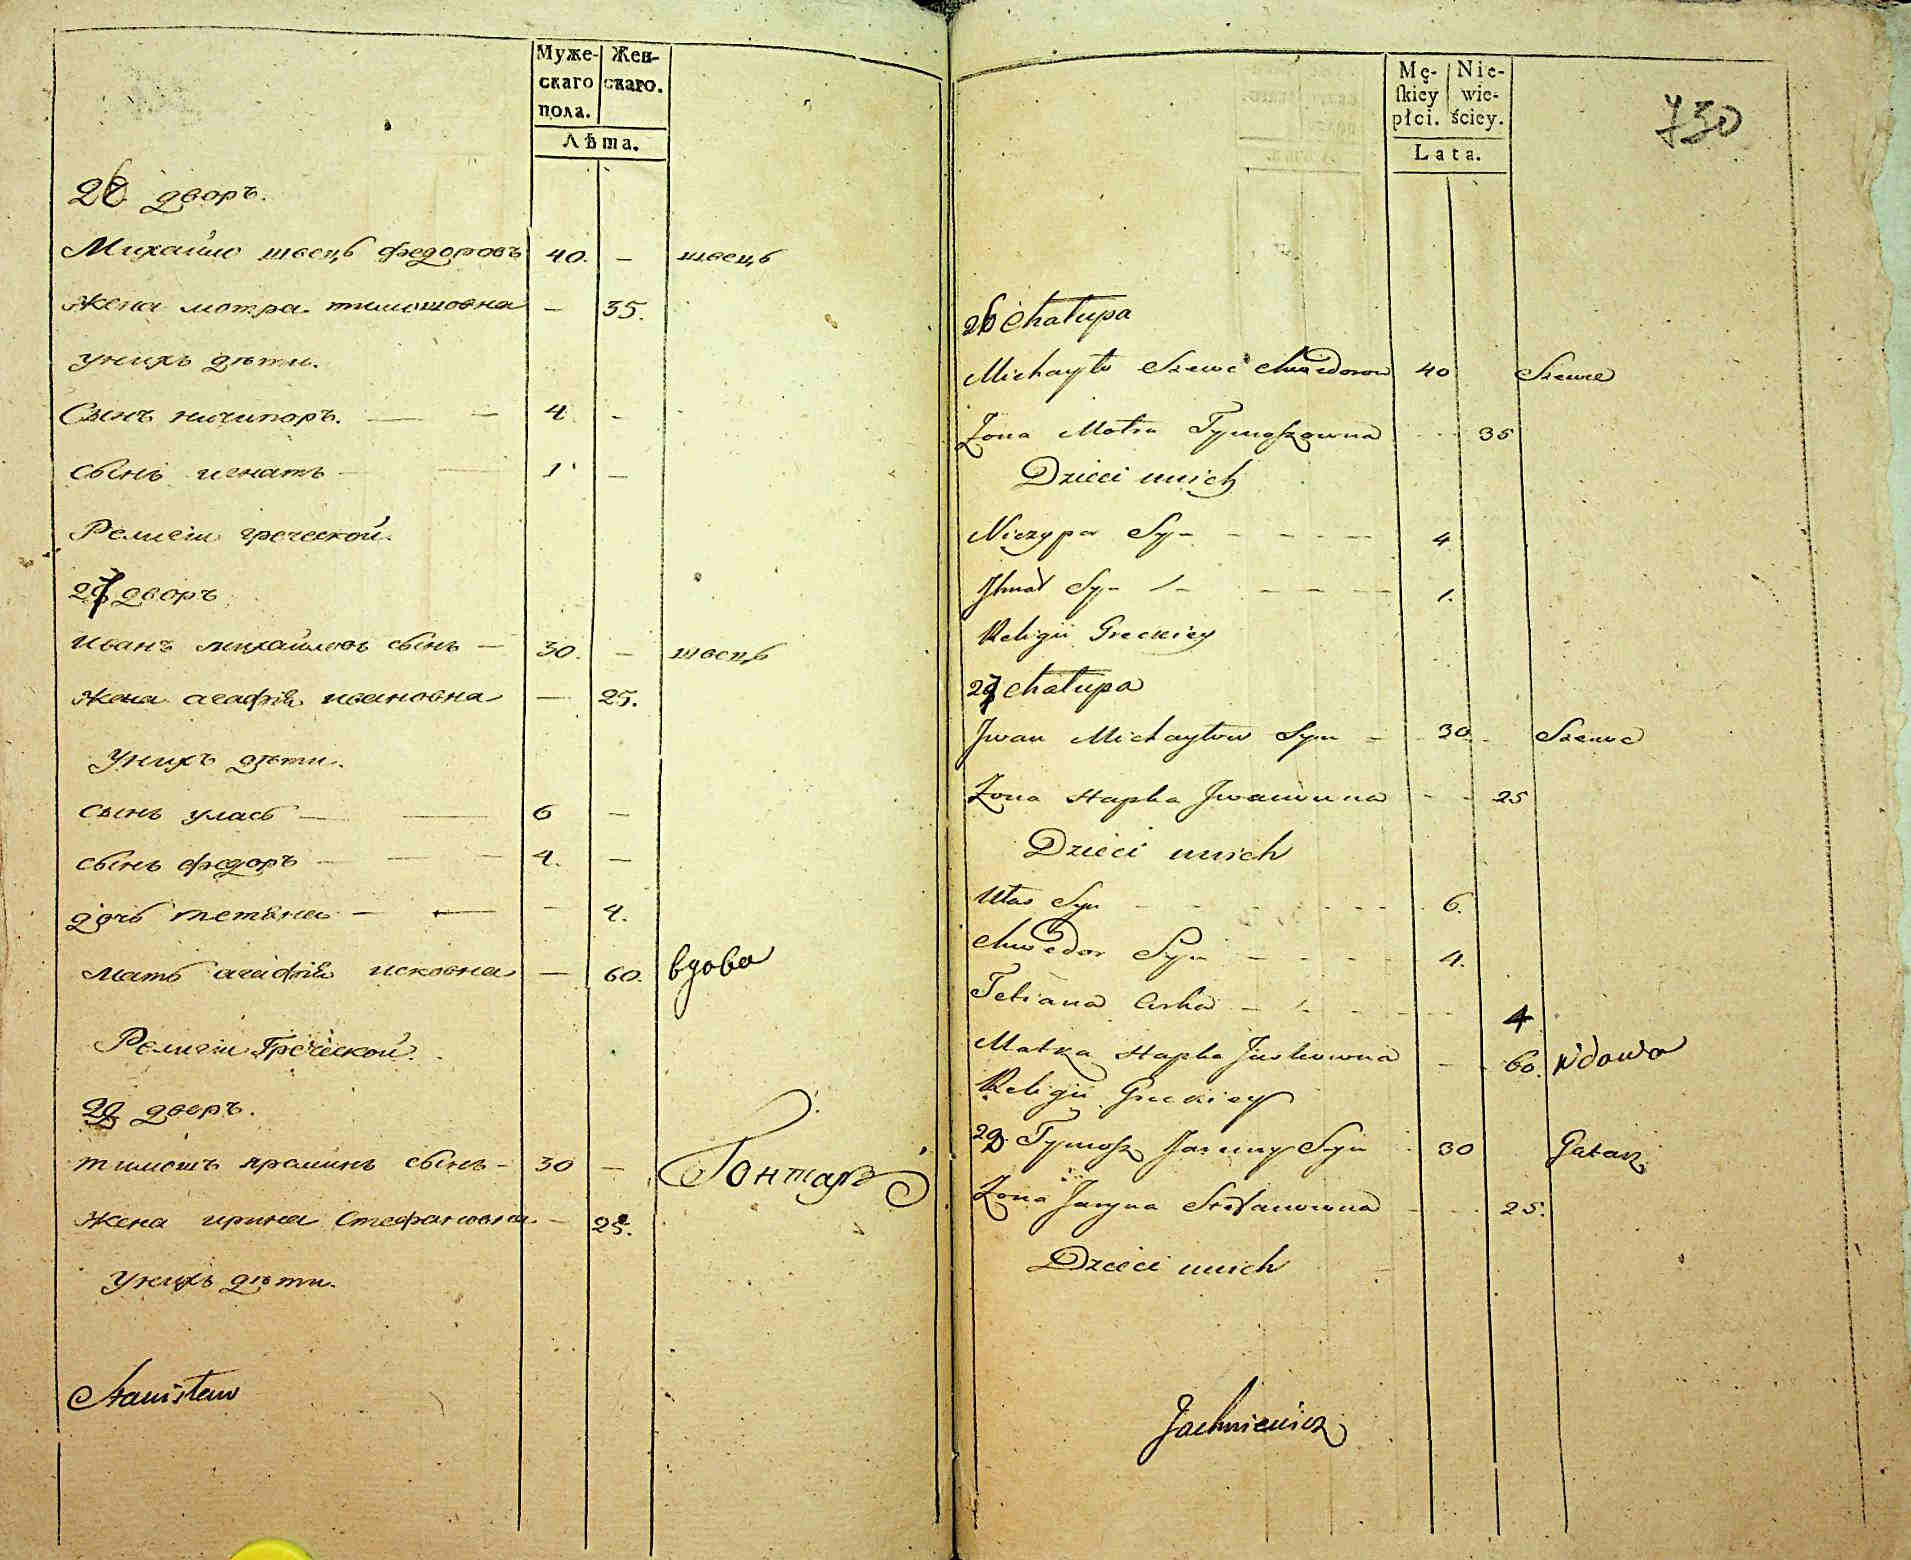 Муже-
скаго
пола.
Жен-
скаго.
Лѣта.
26 дворъ.
Михайло швецъ федоровъ 40. — швецъ
жена мотра тимошовна — 35.
унихъ дѣти.
Сынъ ничипоръ. — — 4 -
сынъ игнатъ — 1 —
Религiи греческой.
27 дворъ
иванъ михайловъ сынъ — 30. — швецъ
жена агафiя ивановна — 25.
унихъ дѣти.
сынъ уласъ — — 6 —
сынъ федоръ — — — 4. —
дочъ тетяна — — — 4.
мать агафiя исковна — 60. вдова
Религiи Греческой.
28 дворъ.
тимошъ яраминъ сынъ — 30 — Гонтаръ
жена ирина Стефановна — 25.
унихъ дѣти.
Stanisław
730
Mę-
skiey
płci.
Nie-
wie-
ściey.
Lata.
26 chałupa
Michayło Szewc Chwedorow 40 Szewc
Żona Motra Tymoszowna - - 35
Dzieci unich
Niczypor Syn - - - - 4
Ihnat Syn - - - - 1.
Religii Greckiey
27 chałupa
Jwan Michayłow Syn - 30. Szewc
Żona Hapka Jwanowna - - 25
Dzieci unich
Ułas Syn - - - - 6.
Chwedor Syn - - - - 4.
Tetiana Corka - - - - 4
Matka Hapka Juskowna - - 60. Wdowa
Religii Greckiey
28. Tymosz Jaremy Syn 30
Żona Jaryna Stefanowna - - 25.
Dzieci unich
Jachniewicz